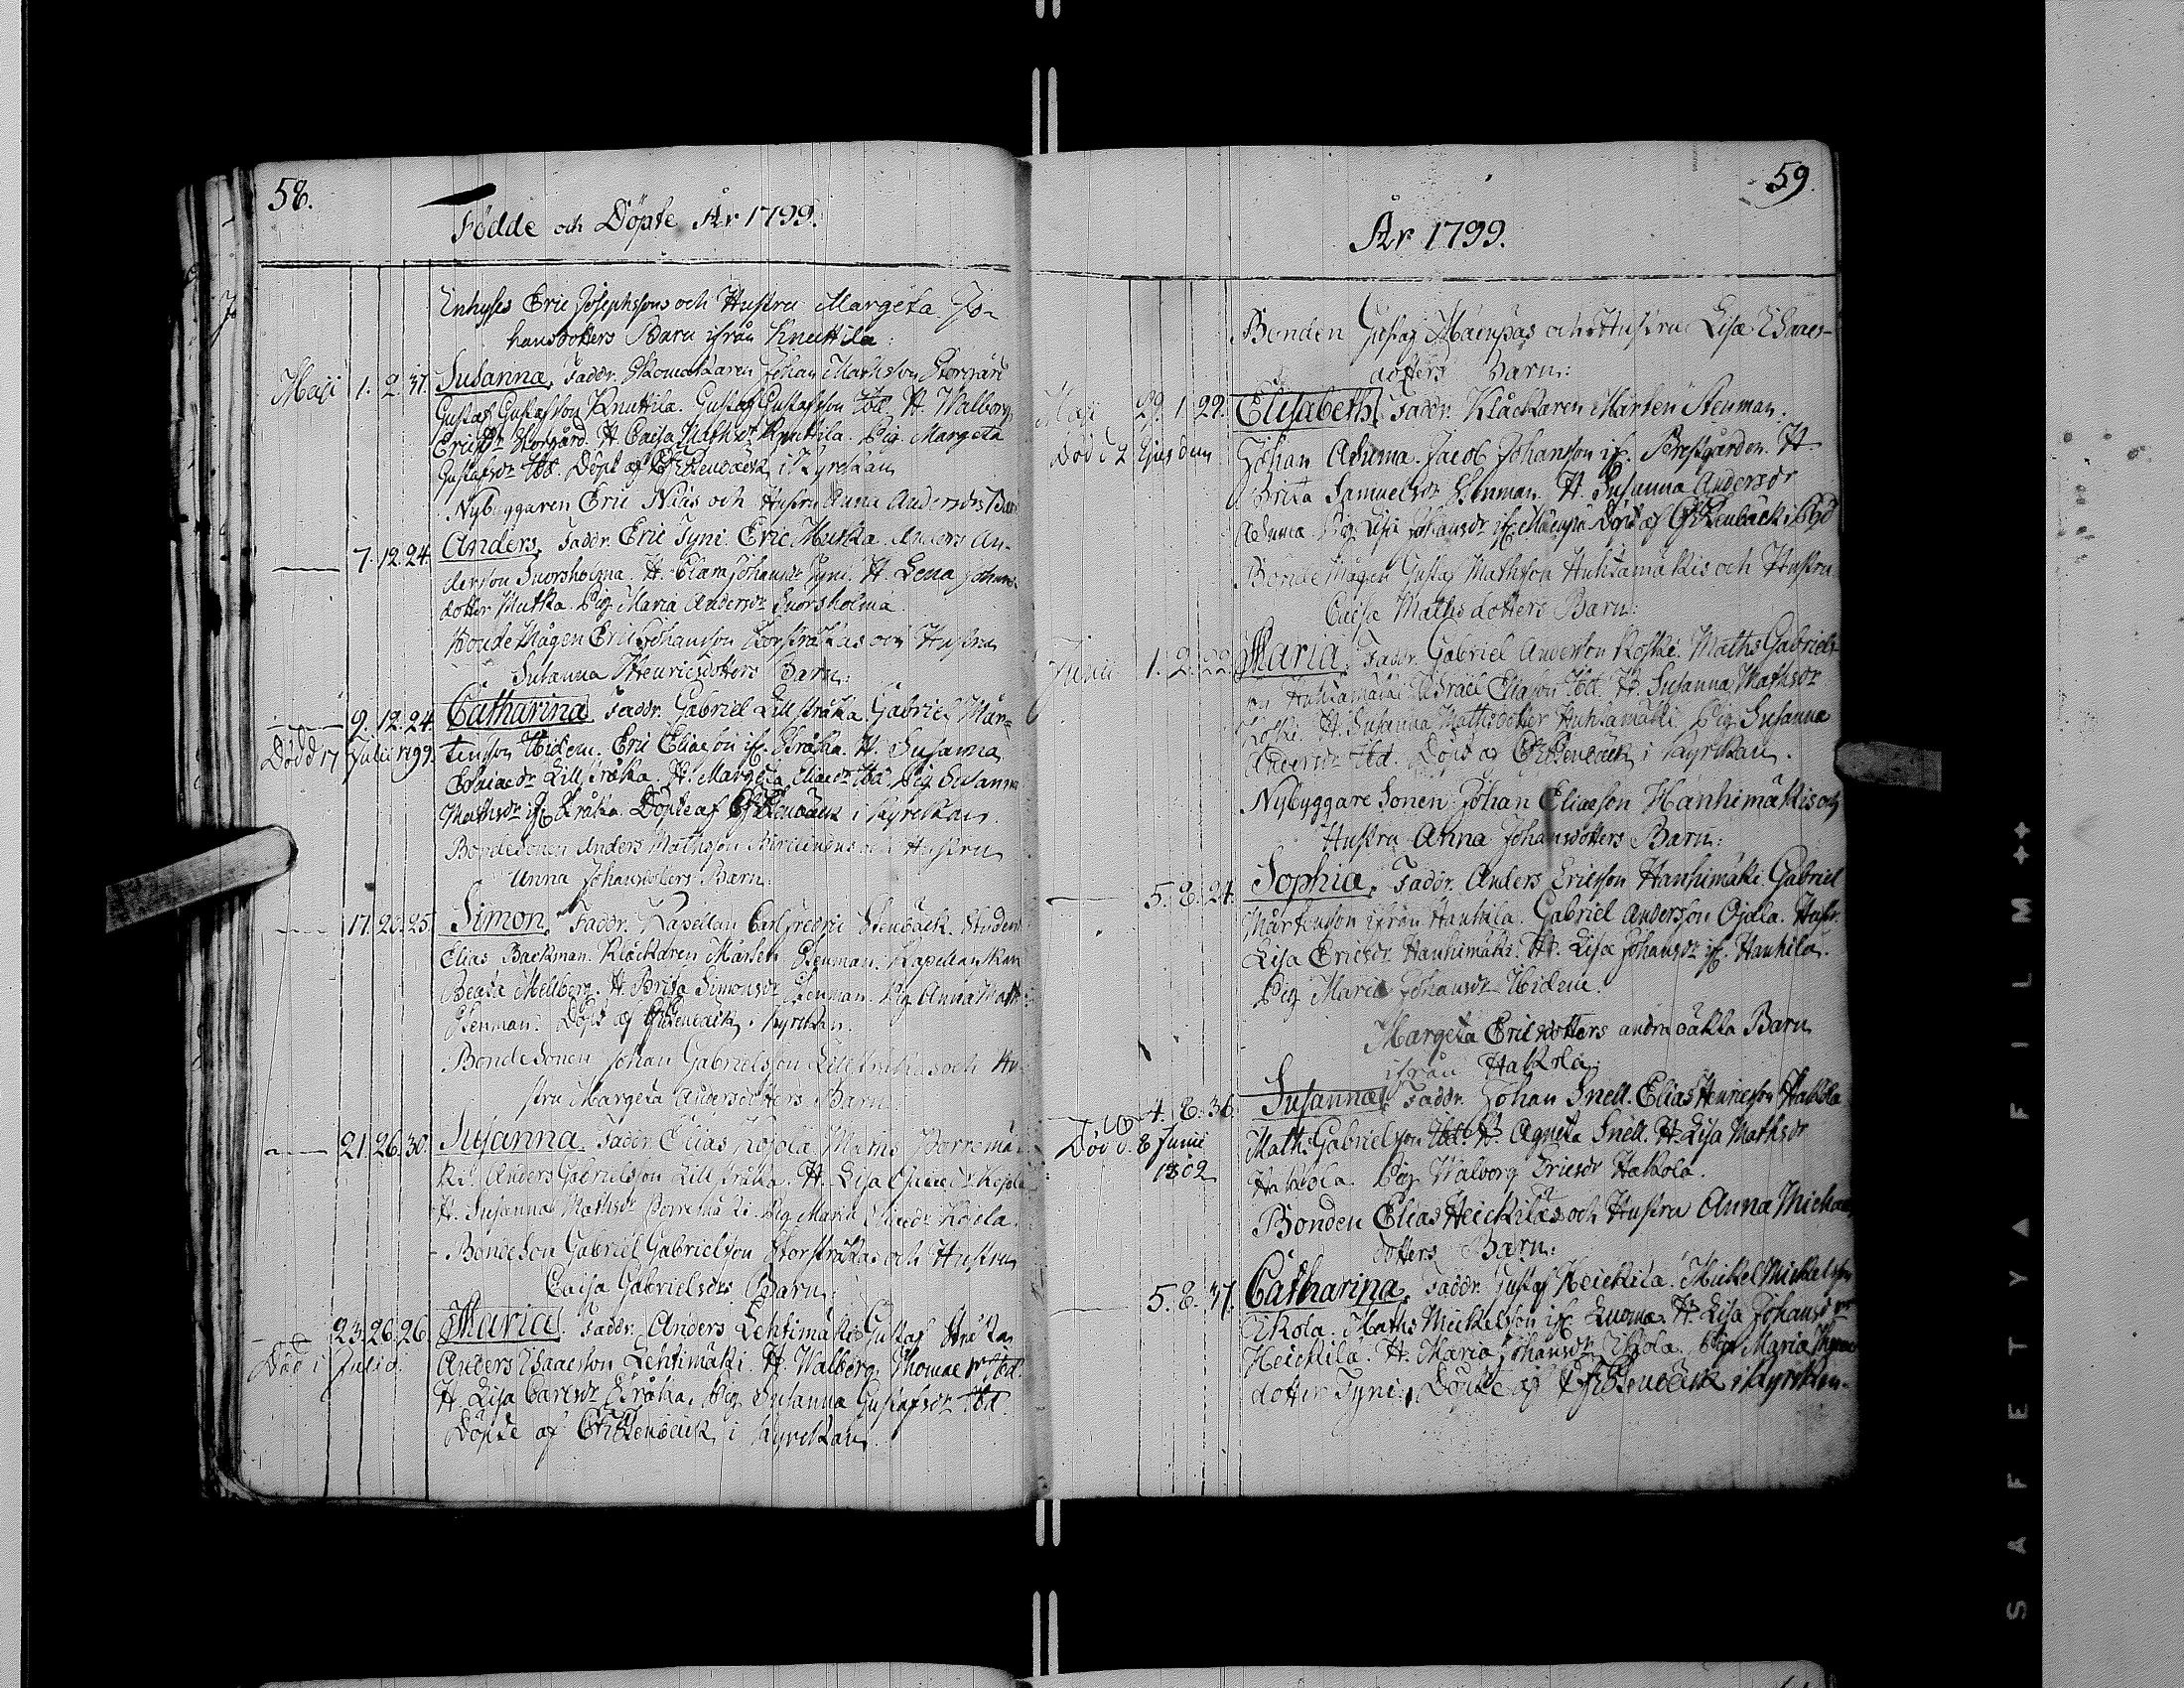 58.
Födde och Döpte År 1799.
Enhyses Eric Josephssons och Hustru Margeta Jo-
hansdotters Barn ifrån Knuttila:
Maji 1. 2. 37. Susanna. Faddr. Skomakaren Johan Mathsson Storgård
Gustaf Gustafsson Knuttila. Gustaf Gustafsson Ibd. H. Walborg
Ericsdr Storgård. H. Caisa Mathsdr Knuttila. Pig. Margeta
Gustafsdr Ibd. Döpt af CFStenbäck i Kyrckan
Nybyggaren Eric Niäs och Hustru Anna Andersdrs Barn
7. 12. 24. Anders. Faddr. Eric Tyni. Eric Mutka. Anders An-
dersson Snorsholma. H. Clara Johansdr Tyni. H. Lena Johans-
dotter Mutka. Pig. Maria Andersdr Snorsholma.
BondeMågen Eric Johansson Storstråkas och Hustru
Susanna Henricsdotters Barn:
9. 12. 24. Catharina. Faddr. Gabriel Lillstråka. Gabriel Mår-
Död d 17 Julii 1799. tensson Widem. Eric Eliasson if. Stråka. H. Susanna
Esaiaedr Lillstråka. H. Margeta Eliaedr Ibd. Pig. Susanna
Mathsdr if. Stråka. Döpte af CFStenbäck i Kyrckan.
Bondesonen Anders Mathsson och Hustru
Anna Johansdotters Barn:
17. 20. 25. Simon. Faddr. Kapellan Carl Fredric Stenbäck. Student
Elias Backman. Klåckaren Mårten Stenman. Kapellanskan
Beata Mellberg. H. Brita Simonsdr Stenman. Pig. Anna Maths
Stenman. Döpt af CFStenbäck i Kyrckan.
BondeSonen Johan Gabrielsson Lillstråkas och Hu-
stru Margeta Andersdotters Barn:
21. 26. 30. Susanna. Faddr. Elias Kojola. Maths Porremä-
ki. Anders Gabrielsson Lillstråka. H. Lisa Kojola
H. Susanna Mathsdr Porremäki. Pig. Maria Eliaedr Kojola.
BondeSon Gabriel Gabrielsson Storstråkas och Hustru
Caisa Gabrielsdrs Barn:
23. 26. 26. Maria. Faddr. Anders Lehtimäki. Gustaf Stråka
Död i Julii Anders Isaacsson Lehtimäki. H. Walborg Thomaedr Ibd.
H. Lisa Carlsdr Stråka. Pig. Susanna Gustafsdr Ibd.
Döpte af CFStenbäck i Kyrckan.
59.
År 1799.
Bonden Gustaf Mäenpäs och Hustru Lisa Isaacs-
dotters Barn:
Maji 29. 1. 29. Elisabeth. Faddr. Klåckaren Mårten Stenman.
Död d 2 Ejusdem Johan Aduma. Jacob Johansson if. Prestgården. H.
Brita Samuelsdr Stenman. H. Susanna Andersdr
Aduma. Pig. Lisa Johansdr if. Mäenpä. Döpt af CFStenbäck i
BondeMågen Gustaf Mathsson Huhtamäkis och Hustru
Caisa Mathsdotters Barn:
Junii 1. 2. 22. Maria. Faddr. Gabriel Andersson Koski. Maths Gabriels-
son Huhtamäki. Israël Eliasson Ibd. H. Susanna Mathsdr
Koski. H. Susanna Mathsdotter Huhtamäki. Pig. Susanna
Andersdr Ibd. Döpt af CFStenbäck i Kyrckan.
Nybyggare Sonen Johan Eliaeson Hanhimäkis och
Hustru Anna Johansdotters Barn:
5. 8. 24. Sophia. Faddr. Anders Ericsson Hanhimäki. Gabriel
Mårtensson ifrån Hanhila. Gabriel Andersson Ojala. Hustr.
Lisa Ericsdr Hanhimäki. H. Lisa Johansdr if. Hanhila.
Pig. Maria Johansdr Widem.
Margeta Ericsdotters andra oäkta Barn
ifrån Hakola:
4. 8. 36. Susanna. Faddr. Johan Snell. Elias Henricsson Hakola
Död d. 8 Junii Maths Gabrielsson Ibd. H. Agneta Snell. H. Lisa Mathsdr
1802 Hakola. Pig. Walborg Ericsdr Hakola.
Bonden Elias Heickiläs och Hustru Anna Michaels
dotters Barn:
5. 8. 37. Catharina. Faddr. Gustaf Heickilä. Mickel Mickelsson
Ikola. Maths Mickelsson if. Luoma. H. Lisa Johansdr
Heickilä. H. Maria Johansdr Ikola. Pig. Maria Thomae
dotter Tyni. Döpte af CFStenbäck i Kyrckan.
SAFETY FILM